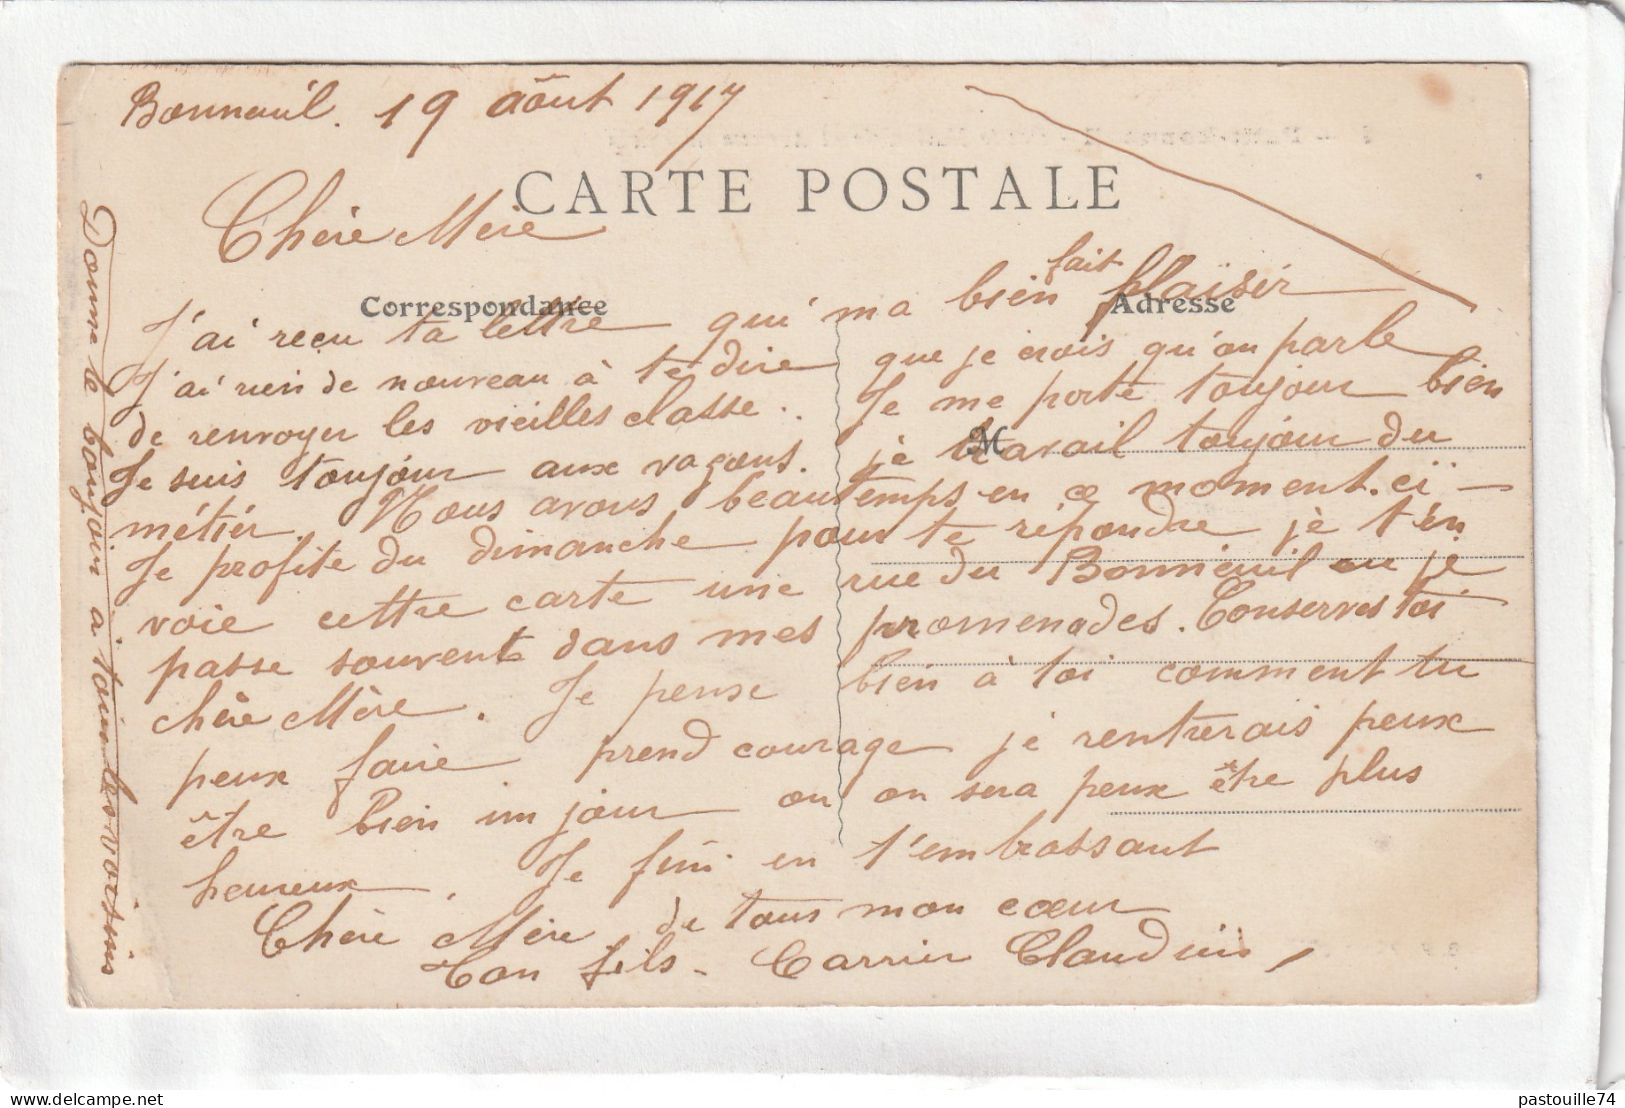 Bonneuil. 19 août 1917
CARTE POSTALE
Chère Mère
Correspondance
Adresse
fait
J'ai reçu ta lettre qui ma bien plaisir
J'ai rien de nouveau à te dire que je crois qu'on parle
de renvoyer les vieilles classe. Je me porte toujour bien
Je suis toujour aux vagons. je travail toujour du
M
métier. Nous avons beau temps en ce moment. ci –
Je profite du dimanche pour te répondre je t'en
voie cettre carte une rue du Bonneuil ou je
passe souvent dans mes promenades. Conserves toi
chère Mère. Je pense bien à toi comment tu
peux faire prend courage je rentrerais peux
être bien un jour ou on sera peux être plus
heureux. Je fini en t'embrassant
Chère Mère de tous mon cœur
Ton fils. Carrier Claudius
Donne le bonjoir à tous les voisins
delcampe.net
pastouille74